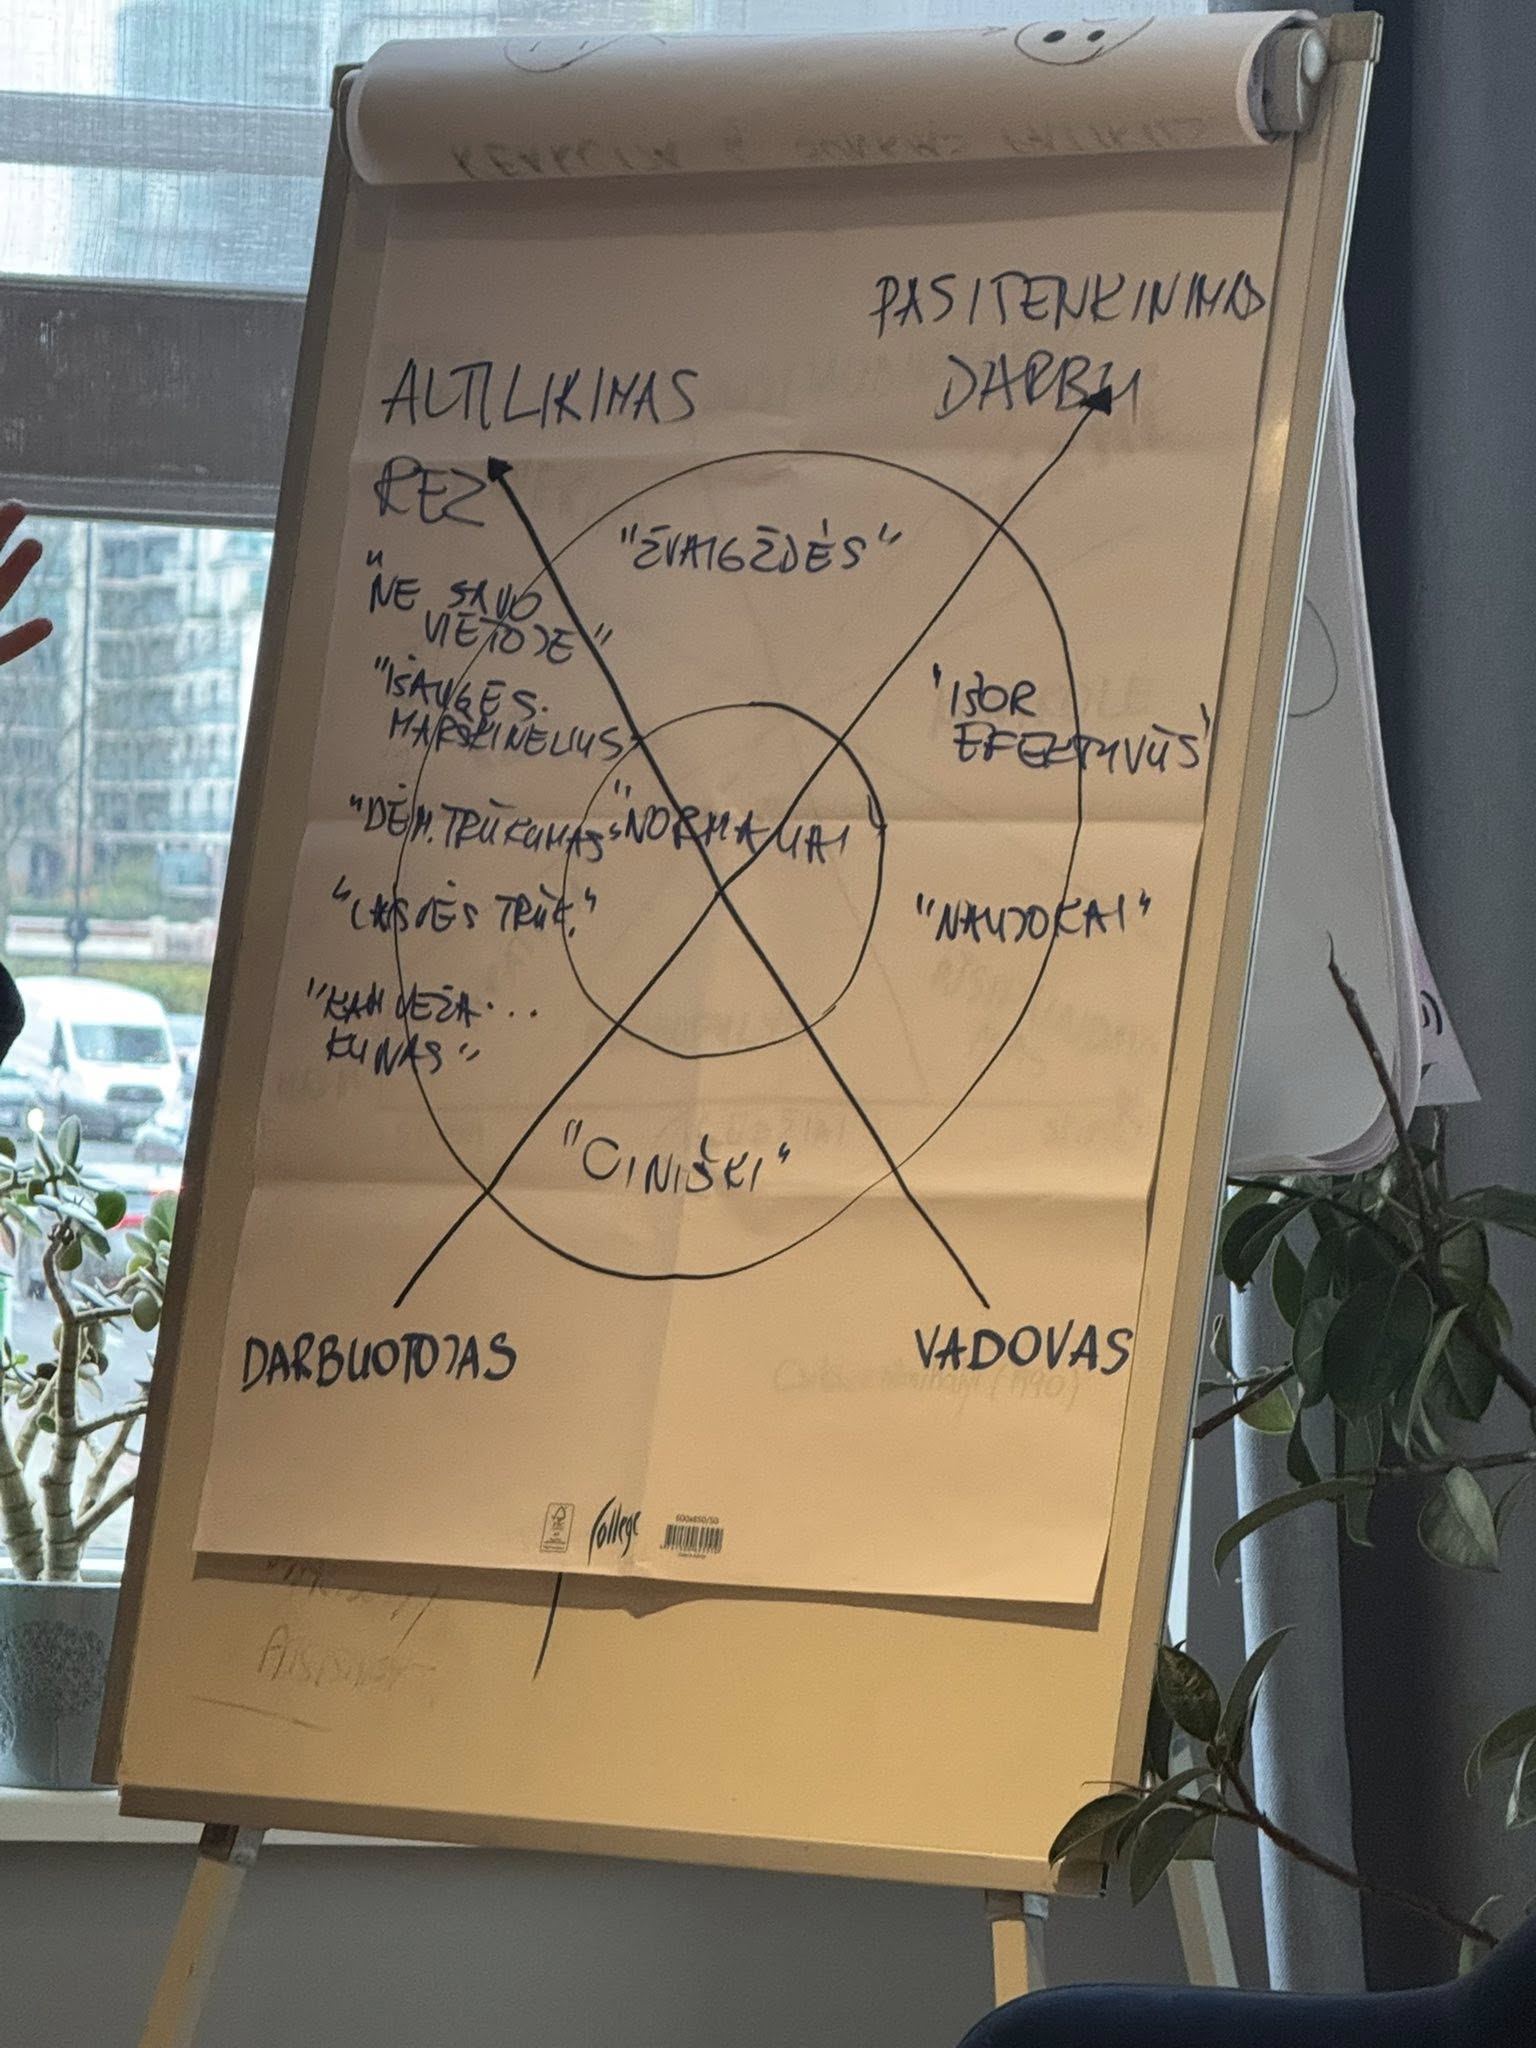 PASITENKINIMAS
DARBU
ATLIKIMAS
REZ
"ŽVAIGŽDĖS"
"NE SAVO
VIETOJE"
"IŠAUGĘS
MARŠKINĖLIUS
"IŠOR
EFEKTYVŪS"
"DĖM. TRŪKUMAS"
"NORMALIAI
"LAISVĖS TRŪK."
"NAUJOKAI"
"KAM VEŽA...
KUNAS"
"CINIŠKI"
DARBUOTOJAS
VADOVAS
College
600x850/50